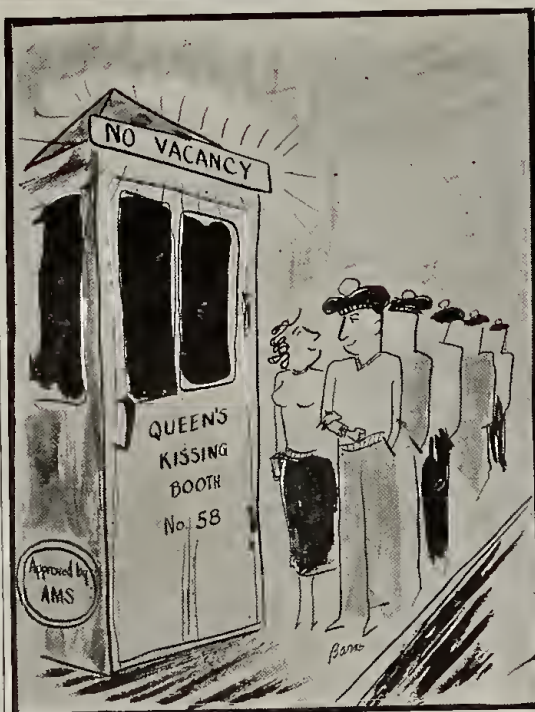 NO VACANCY
QUEEN'S
KISSING
BOOTH
No. 58
Approved by
AMS